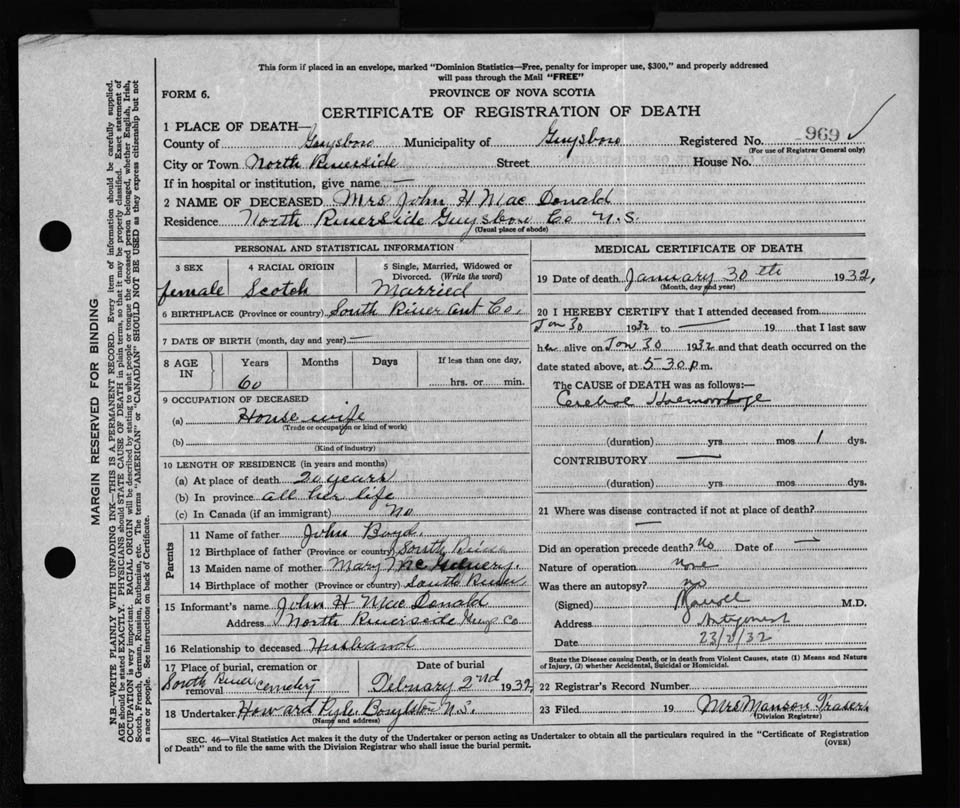 This form if placed in an envelope, marked "Dominion Statistics—Free, penalty for improper use, $300," and properly addressed
will pass through the Mail "FREE"
FORM 6.
PROVINCE OF NOVA SCOTIA
CERTIFICATE OF REGISTRATION OF DEATH
1 PLACE OF DEATH—
County of Guysboro Municipality of Guysboro Registered No. 969
(For use of Registrar General only)
City or Town North Riverside Street House No.
If in hospital or institution, give name —
2 NAME OF DECEASED Mrs John H Mac Donald
Residence North Riverside Guysboro Co N.S.
(Usual place of abode)
PERSONAL AND STATISTICAL INFORMATION
3 SEX
female
4 RACIAL ORIGIN
Scotch
5 Single, Married, Widowed or
Divorced. (Write the word)
Married
6 BIRTHPLACE (Province or country) South River Ant Co,
7 DATE OF BIRTH (month, day and year) —
8 AGE
IN
Years
60
Months
Days
If less than one day,
hrs. or min.
9 OCCUPATION OF DECEASED
(a) House wife
(Trade or occupation or kind of work)
(b)
(Kind of industry)
10 LENGTH OF RESIDENCE (in years and months)
(a) At place of death 20 years
(b) In province all her life
(c) In Canada (if an immigrant) No
Parents
11 Name of father John Boyd
12 Birthplace of father (Province or country) South River
13 Maiden name of mother Mary
14 Birthplace of mother (Province or country) South River
15 Informant's name John H Mac Donald
Address North Riverside Guys Co
16 Relationship to deceased Husband
17 Place of burial, cremation or
removal South River Cemetery
Date of burial
February 2nd 1932
18 Undertaker Howard Pyle Boylston N.S.
(Name and address)
MEDICAL CERTIFICATE OF DEATH
19 Date of death January 30th 1932,
(Month, day and year)
20 I HEREBY CERTIFY that I attended deceased from
Jan 30 1932 to — 19 that I last saw
her alive on Jan 30 1932 and that death occurred on the
date stated above, at 5-30 p.m.
The CAUSE OF DEATH was as follows:—
Cerebral Haemorrhage
(duration) yrs. mos 1 dys.
CONTRIBUTORY —
(duration) yrs. mos. dys.
21 Where was disease contracted if not at place of death?
—
Did an operation precede death? No Date of —
Nature of operation none
Was there an autopsy? no
(Signed) M.D.
Address Antigonish
Date 23/2/32
State the Disease causing Death, or in death from Violent Causes, state (1) Means and Nature
of Injury, (2) whether Accidental, Suicidal or Homicidal.
22 Registrar's Record Number
23 Filed 19 Mrs Manson Fraser
(Division Registrar)
SEC. 46—Vital Statistics Act makes it the duty of the Undertaker or person acting as Undertaker to obtain all the particulars required in the "Certificate of Registration
of Death" and to file the same with the Division Registrar who shall issue the burial permit.
(OVER)
MARGIN RESERVED FOR BINDING
N.B—WRITE PLAINLY WITH UNFADING INK—THIS IS A PERMANENT RECORD. Every item of information should be carefully supplied.
AGE should be stated EXACTLY. PHYSICIANS should STATE CAUSE OF DEATH in plain terms, so that it may be properly classified. Exact statement of
OCCUPATION is very important. RACIAL ORIGIN will be described by stating to what people or tongue the deceased person belonged, whether English, Irish,
Scotch, French, German, Russian, Ruthenian, etc. The terms "AMERICAN" or "CANADIAN" SHOULD NOT BE USED as they express citizenship but not
a race or people. See instructions on back of Certificate.